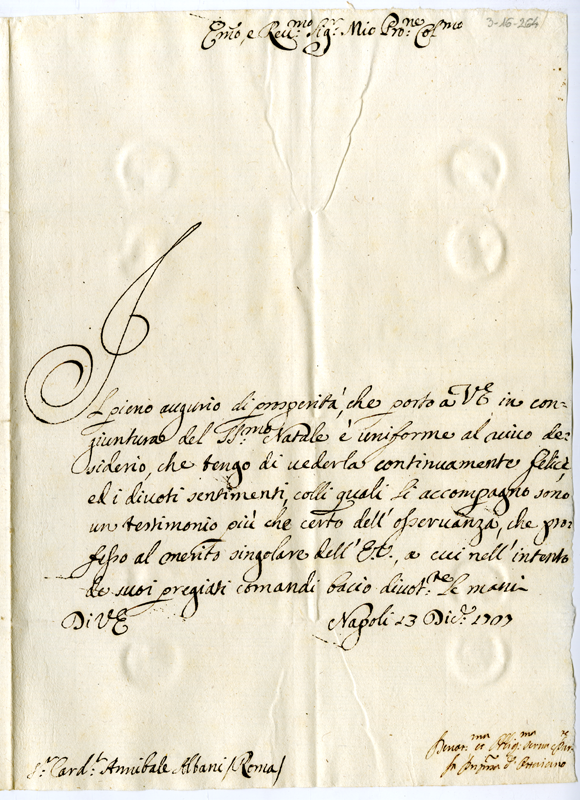 3-16-264
Emo, e Reu:mo Sigr. Mio Prone. Colmo
Il pieno augurio di prosperità, che porto a VE in con-
giuntura del SSmo Natale è uniforme al viuo de-
siderio, che tengo di vederla continuamente felice,
ed i diuoti sentimenti, colli quali Li accompagno sono
un testimonio più che certo dell'osseruanza, che pro-
fesso al merito singolare dell'E.V., a cui nell'intento
de suoi pregiati comandi bacio diuot:te Le mani
Di VE Napoli 13 Dic.e 1707
Sr. Card.l Annibale Albani /Roma/